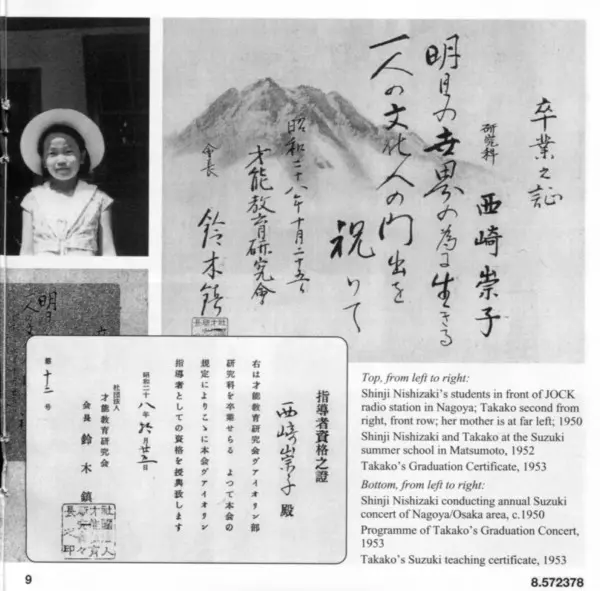 卒業之証
研究科 西崎崇子
明日の世界の為に生きる
一人の文化人の門出を
祝して
昭和二十八年十月二十五日
才能教育研究會
會長 鈴木鎮一
明日
人
第十二号
指導者資格之證
西崎崇子 殿
右は才能教育研究会ヴァイオリン部
研究科を卒業せらる よつて本会の
規定によりこゝに本会ヴァイオリン
指導者としての資格を授與致します
昭和二十八年 拾月廿五日
社団法人
才能教育研究会
会長 鈴木鎮一
Top, from left to right:
Shinji Nishizaki's students in front of JOCK
radio station in Nagoya; Takako second from
right, front row; her mother is at far left; 1950
Shinji Nishizaki and Takako at the Suzuki
summer school in Matsumoto, 1952
Takako's Graduation Certificate, 1953
Bottom, from left to right:
Shinji Nishizaki conducting annual Suzuki
concert of Nagoya/Osaka area, c.1950
Programme of Takako's Graduation Concert,
1953
Takako's Suzuki teaching certificate, 1953
9
8.572378